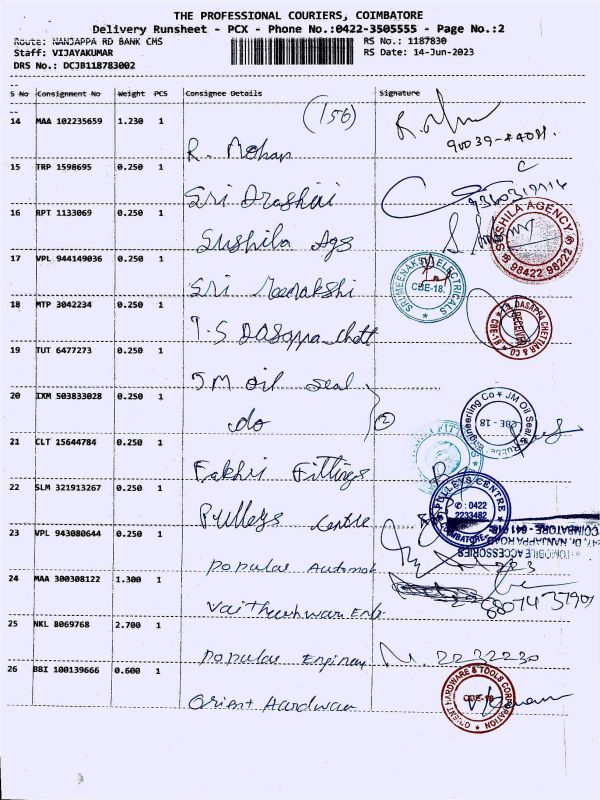 THE PROFESSIONAL COURIERS, COIMBATORE
Delivery Runsheet - PCX - Phone No.:0422-3505555 - Page No.:2
Route: NANJAPPA RD BANK CMS RS No.: 1187830
Staff: VIJAYAKUMAR RS Date: 14-Jun-2023
DRS No.: DCJB118783002
S No Consignment No Weight PCS Consignee Details Signature
(156)
14 MAA 102235659 1.230 1 R. Mohan
15 TRP 1598695 0.250 1 Sri Drashini
16 RPT 1133069 0.250 1 Sushila Ags
SUSHILA AGENCY
98422 98222
17 VPL 944149036 0.250 1 Sri Meenakshi
SRI MEENAKSHI ELECTRICALS
CBE-18.
18 MTP 3042234 0.250 1 T.S Dasappa Chett
DASAPPA CHETTIAR & CO
RECEIVED
19 TUT 6477273 0.250 1 JM oil seal
20 IXM 503833028 0.250 1 do (2)
JM Oil Seal
Engineering Co
CBE - 18
21 CLT 15644784 0.250 1 Fakhri Fittings
22 SLM 321913267 0.250 1 Pulleys Centre
PULLEYS CENTRE
✆ : 0422
2233482
COIMBATORE
23 VPL 943080644 0.250 1 Popular Automob
COIMBATORE - 641 018
NANJAPPA ROAD
AUTOMOBILE ACCESSORIES
24 MAA 300308122 1.300 1
25 NKL 8069768 2.700 1 Popular
2232230
26 BBI 100139666 0.600 1 Orient Hardwar
ORIENT HARDWARE & TOOLS CORPORATION
CBE-18